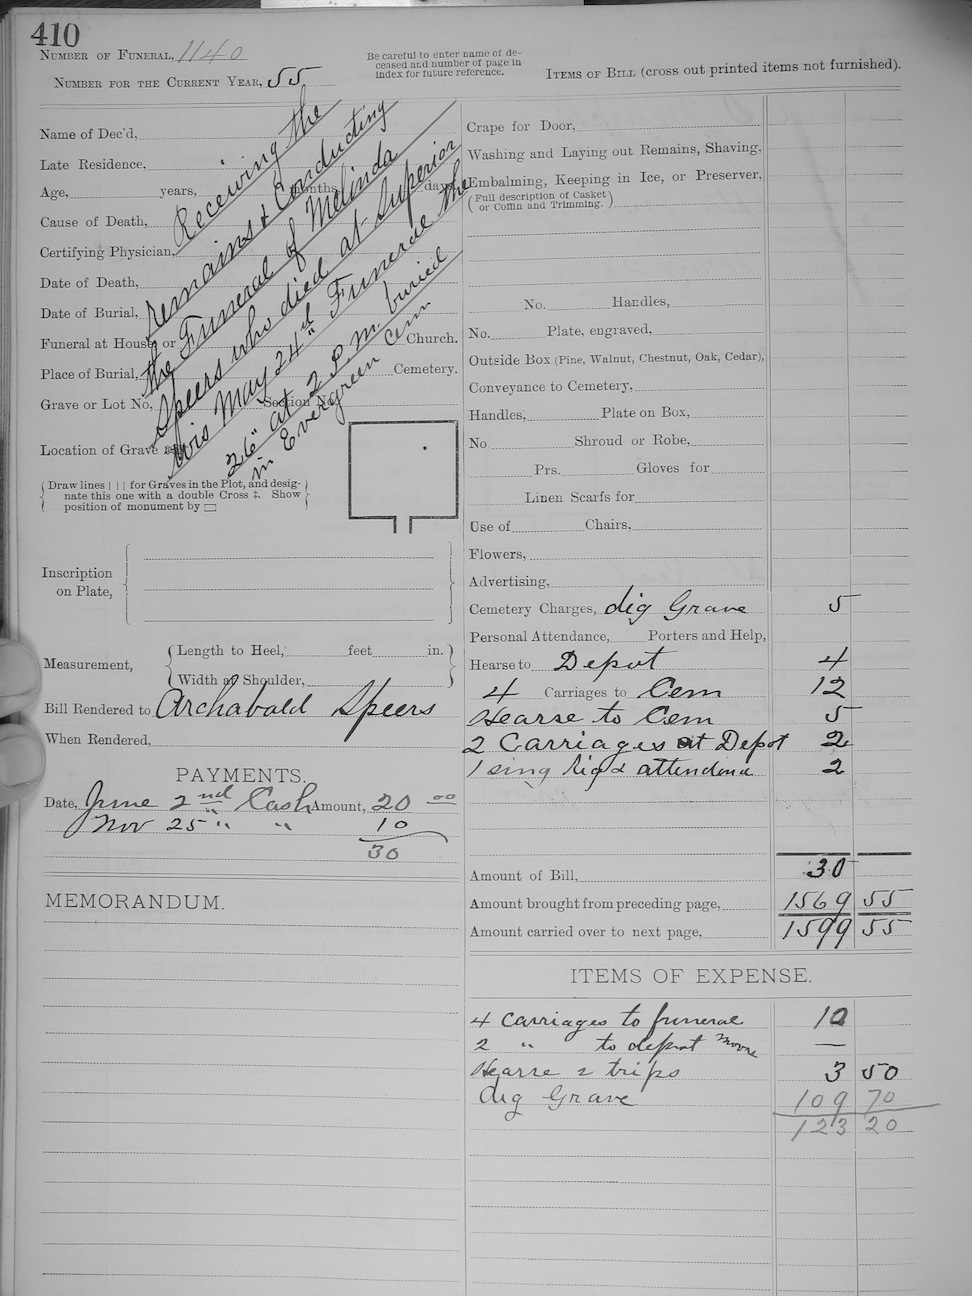 410
Number of Funeral, 1140
Number for the Current Year, 55
Be careful to enter name of de-
ceased and number of page in
index for future reference.
Items of Bill (cross out printed items not furnished).
Name of Dec'd,
Late Residence,
Age, years, months, days
Cause of Death,
Certifying Physician,
Date of Death,
Date of Burial,
Funeral at House or Church.
Place of Burial, Cemetery.
Grave or Lot No, Section No.
Location of Grave
Receiving the
remains & Conducting
the Funeral of Melinda
Speers who died at Superior
Wis May 24th Funeral the
26" at 2 P.M. buried
in Evergreen Cem
Draw lines | | | for Graves in the Plot, and desig-
nate this one with a double Cross ‡. Show
position of monument by ▭
Inscription
on Plate,
Measurement,
Length to Heel, feet in.
Width at Shoulder,
Bill Rendered to Archabald Speers
When Rendered,
PAYMENTS.
Date, June 2nd Cash Amount, 20 00
Nov 25 " " 10
30
MEMORANDUM.
Crape for Door,
Washing and Laying out Remains, Shaving,
Embalming, Keeping in Ice, or Preserver,
(Full description of Casket
or Coffin and Trimming.)
No. Handles,
No. Plate, engraved,
Outside Box (Pine, Walnut, Chestnut, Oak, Cedar),
Conveyance to Cemetery,
Handles, Plate on Box,
No. Shroud or Robe,
Prs. Gloves for
Linen Scarfs for
Use of Chairs,
Flowers,
Advertising,
Cemetery Charges, dig Grave 5
Personal Attendance, Porters and Help,
Hearse to Depot 4
4 Carriages to Cem 12
Hearse to Cem 5
2 Carriages at Depot 2
1 sing rig & 2
Amount of Bill, 30
Amount brought from preceding page, 1569 55
Amount carried over to next page, 1599 55
ITEMS OF EXPENSE.
4 Carriages to funeral 10
2 " to depot Moore —
Hearse 2 trips 3 50
dig Grave 109 70
123 20